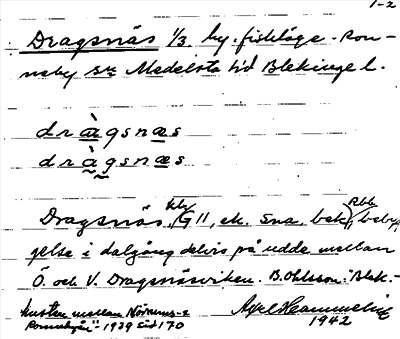 1-2
Dragsnäs 1/3. by. fiskläge. Ron-
neby sn Medelsta hd Blekinge l.
dràgsnæs
dràgsnæs
Dragsnäs, G 11, ek. Sna. bek. beby-
gelse i dalgång delvis på udde mellan
Ö. och V. Dragsnäsviken. B. Ohlsson: "Blek.-
kusten mellan
Ronnebyån" 1939 sid 170
Axel
1942